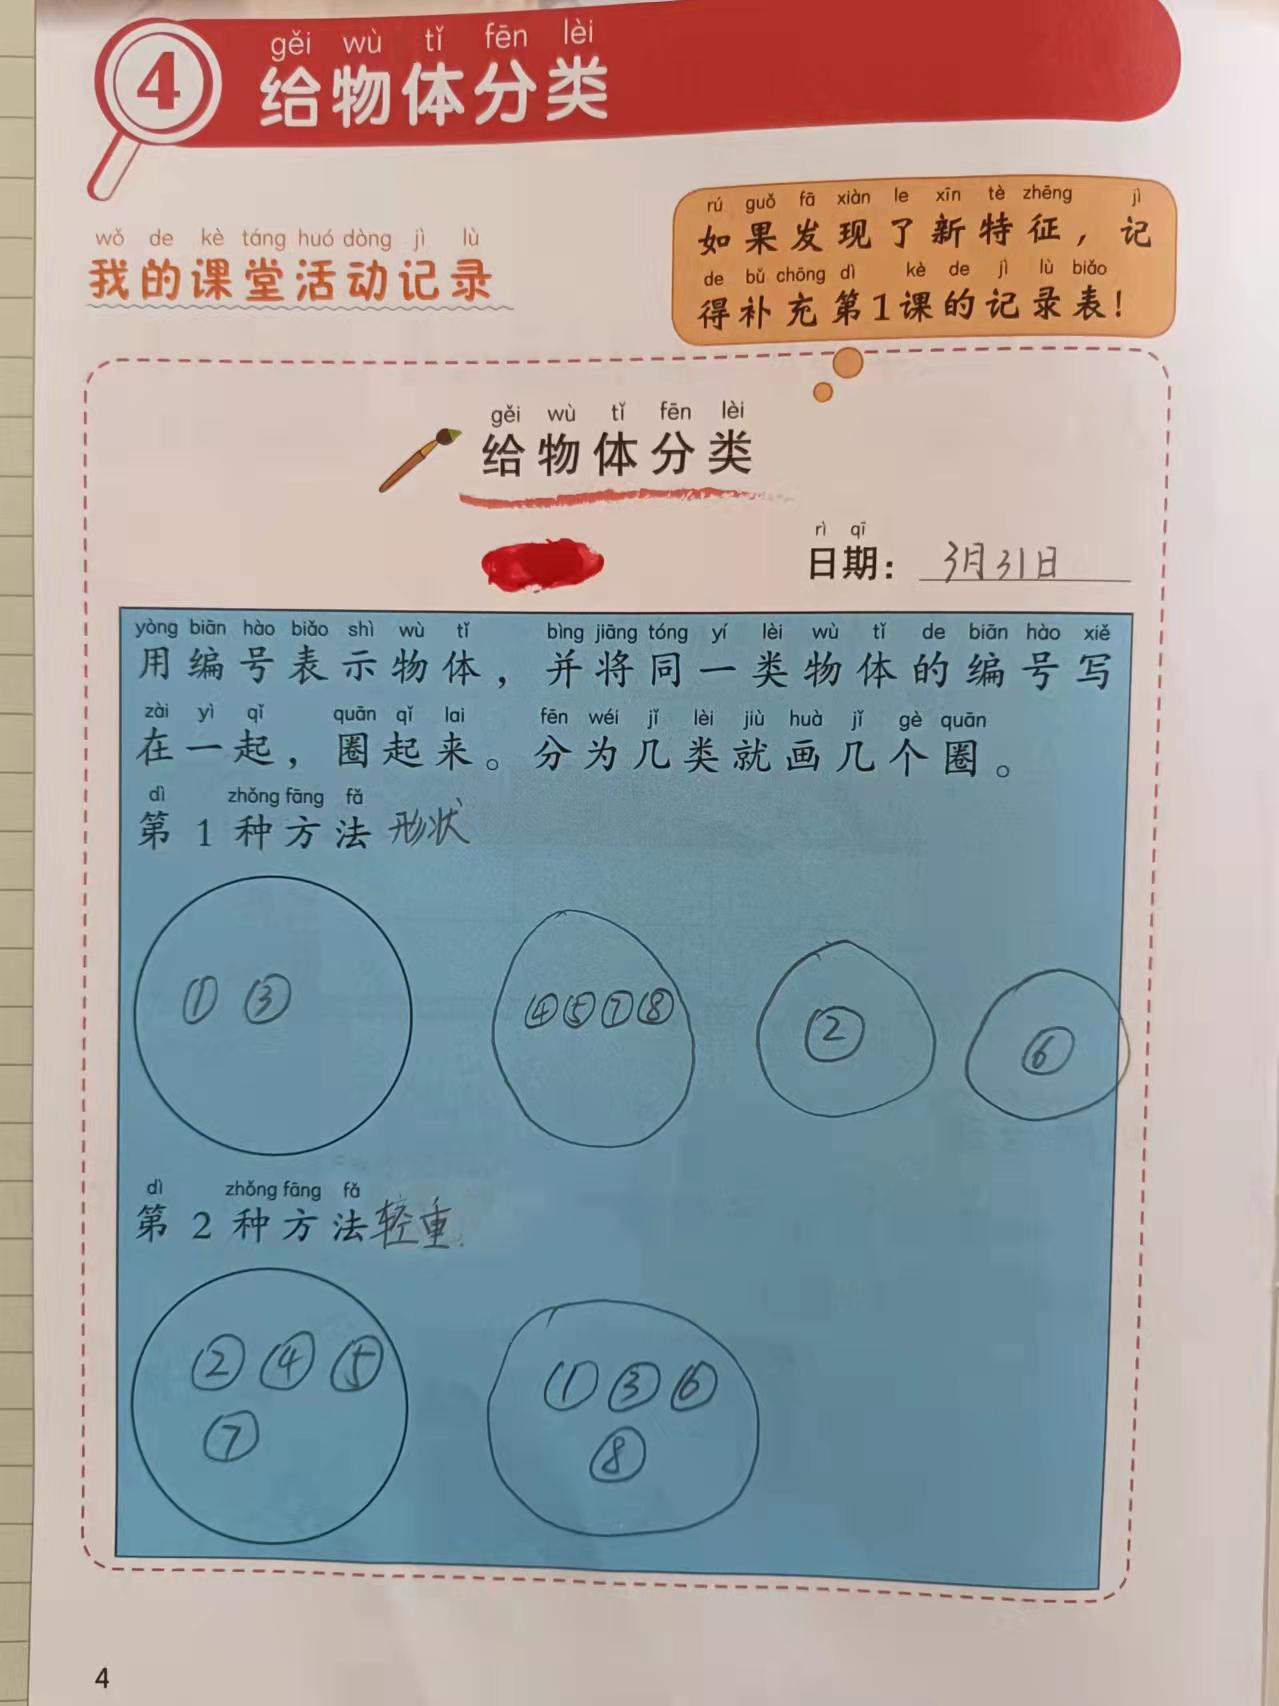 4
gěi wù tǐ fēn lèi
给物体分类
rú guǒ fā xiàn le xīn tè zhēng jì
如果发现了新特征，记
de bǔ chōng dì kè de jì lù biǎo
得补充第1课的记录表！
wǒ de kè táng huó dòng jì lù
我的课堂活动记录
gěi wù tǐ fēn lèi
给物体分类
rì qī
日期：3月31日
yòng biān hào biǎo shì wù tǐ bìng jiāng tóng yí lèi wù tǐ de biān hào xiě
用编号表示物体，并将同一类物体的编号写
zài yì qǐ quān qǐ lai fēn wéi jǐ lèi jiù huà jǐ gè quān
在一起，圈起来。分为几类就画几个圈。
dì zhǒng fāng fǎ
第1种方法 形状
① ③ ④⑤⑦⑧ ② ⑥
dì zhǒng fāng fǎ
第2种方法 轻重.
② ④ ⑤ ① ③ ⑥
⑦ ⑧
4